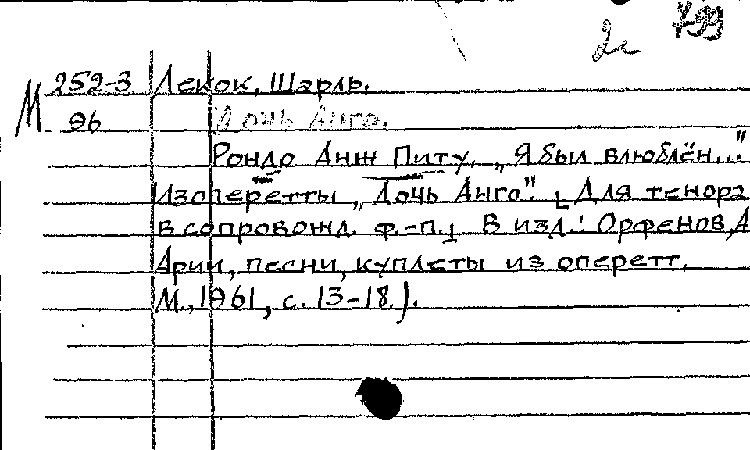 2с 799
М 252-3 Лекок, Шарль.
96 Дочь Анго.
Рондо Анж Питу „Я был влюблён..."
Из оперетты „Дочь Анго". [Для тенора
в сопровожд. ф.-п.] В изд.: Орфенов, А
Арии, песни, куплеты из оперетт.
М., 1961, с. 13-18).